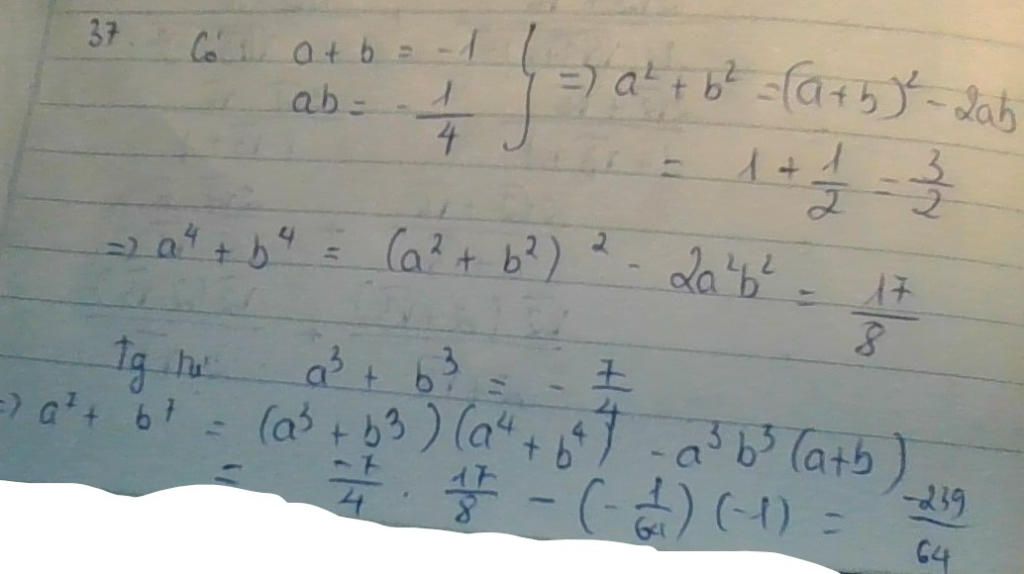 37. Có: a + b = -1
ab = -1/4 } => a² + b² = (a+b)² - 2ab
= 1 + 1/2 = 3/2
=> a⁴ + b⁴ = (a² + b²)² - 2a²b² = 17/8
Tg tự a³ + b³ = -7/4
=> a⁷ + b⁷ = (a³ + b³)(a⁴ + b⁴) - a³b³(a+b)
= -7/4 . 17/8 - (-1/64)(-1) = -239/64